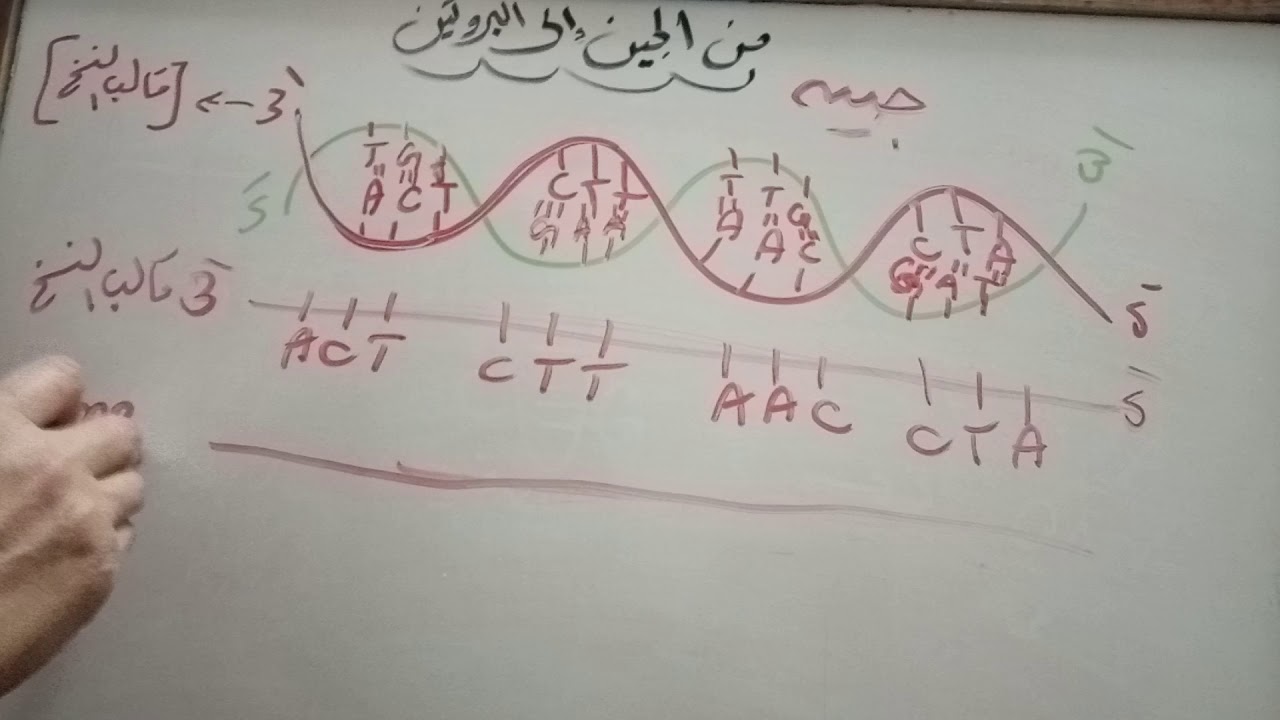 من الجين إلى البروتين
جين
[قالب النسخ] ← 3'
5' 3'
T G
A C T
C T T
G A A
T T G
A A C
C T A
G A T
5'
قالب النسخ 3'
A C T C T T A A C C T A 5'